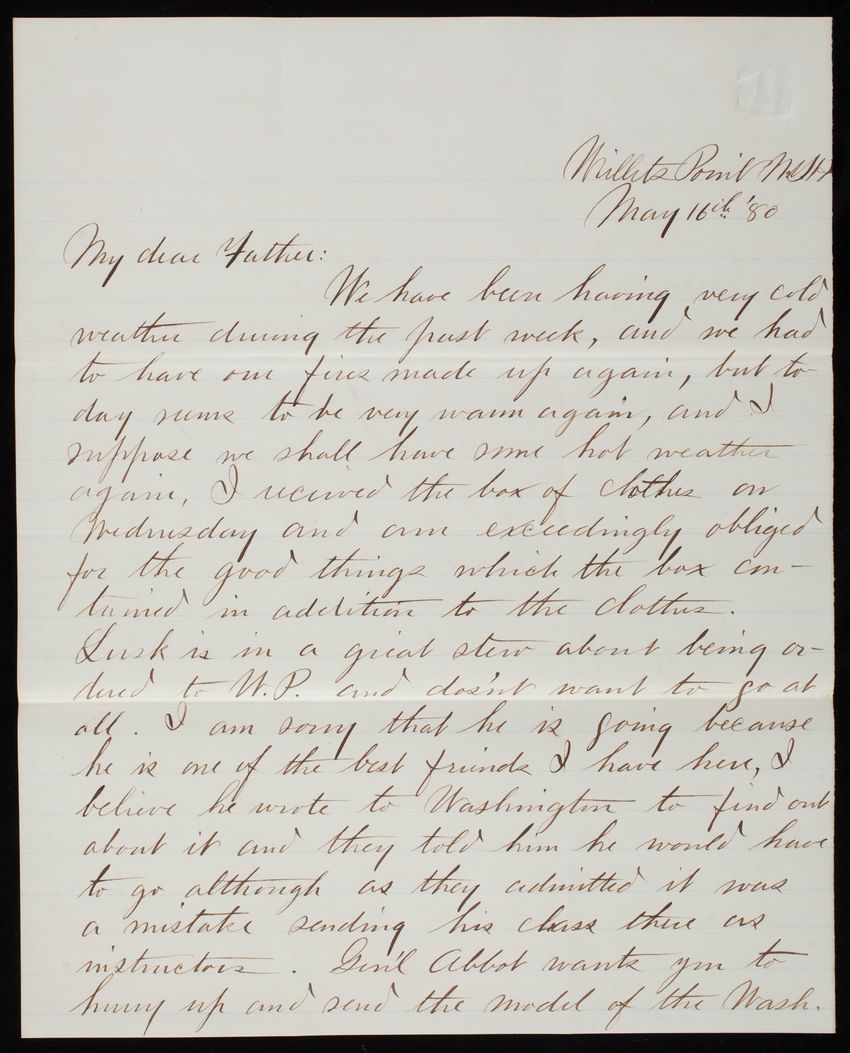 Willets Point N.Y.H.
May 16th '80
My dear Father:
We have been having very cold
weather during the past week, and we had
to have our fires made up again, but to-
day seems to be very warm again, and I
suppose we shall have some hot weather
again, I received the box of clothes on
Wednesday and am exceedingly obliged
for the good things which the box con-
tained in addition to the clothes.
Lusk is in a great stew about being or-
dered to W.P. and does'nt want to go at
all. I am sorry that he is going because
he is one of the best friends I have here, I
believe he wrote to Washington to find out
about it and they told him he would have
to go although as they admitted it was
a mistake sending his class there as
instructors. Gen'l Abbot wants you to
hurry up and send the model of the Wash.